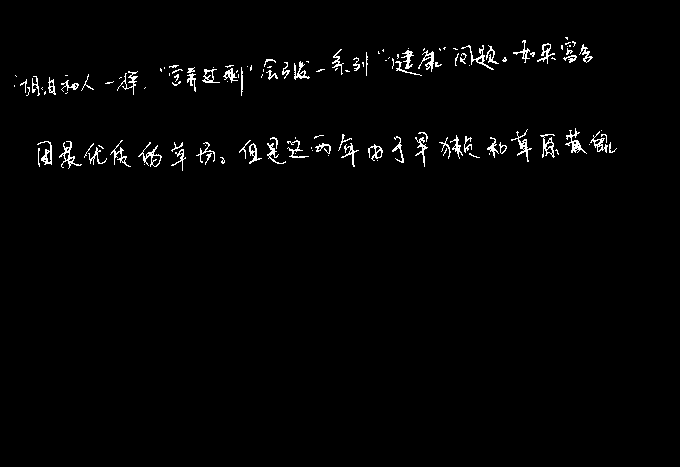 湖泊和人一样，“营养过剩”会引发一系列“健康”问题。如果富含
国最优质的草场。但是这两年由于旱獭和草原黄鼠